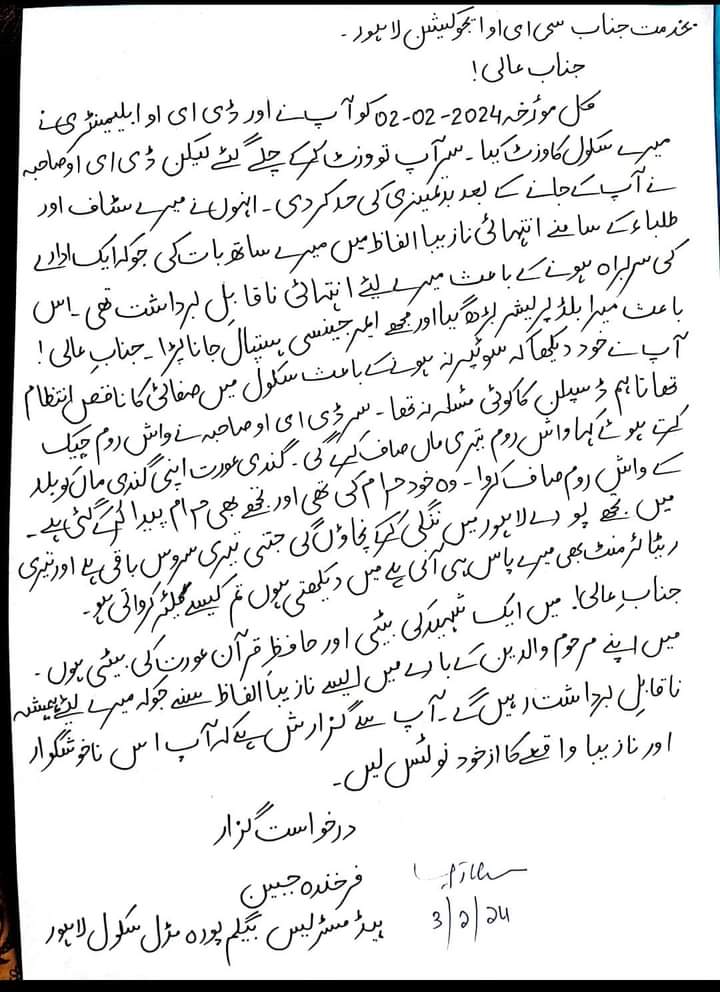 بخدمت جناب سی ای او ایجوکیشن لاہور۔
جناب عالی!
کل مورٔخہ 02-02-2024 کو آپ نے اور ڈی ای او ایلیمنٹری نے
میرے سکول کا وزٹ کیا۔ سر آپ تو وزٹ کر کے چلے گئے لیکن ڈی ای او صاحبہ
نے آپ کے جانے کے بعد بدتمیزی کی حد کر دی۔ انہوں نے میرے سٹاف اور
طلباء کے سامنے انتہائی نازیبا الفاظ میں میرے ساتھ بات کی جو کہ ایک ادارے
کی سربراہ ہونے کے باعث میرے لیٔے انتہائی ناقابلِ برداشت تھی۔ اس
باعث میرا بلڈ پریشر بڑھ گیا اور مجھے ایمرجینسی ہسپتال جانا پڑا۔ جنابِ عالی!
آپ نے خود دیکھا کہ سوئیپر نہ ہونے کے باعث سکول میں صفائی کا ناقص انتظام
تھا تاہم ڈسپلن کا کوئی مسٔلہ نہ تھا۔ سر ڈی ای او صاحبہ نے واش روم چیک
کرتے ہوئے کہا واش روم تیری ماں صاف کرے گی۔ گندی عورت اپنی گندی ماں کو بلا
کے واش روم صاف کروا۔ وہ خود حرام کی تھی اور تجھے بھی حرام پیدا کر کے گئی ہے۔
میں تجھے پورے لاہور میں ننگی کر کے نچاؤں گی جتنی تیری سروس باقی ہے اور تیری
ریٹائرمنٹ بھی میرے پاس ہی آنی ہے میں دیکھتی ہوں تم کیسے کلیٔر کرواتی ہو۔
جنابِ عالی! میں ایک شہید کی بیٹی اور حافظِ قرآن عورت کی بیٹی ہوں۔
میں اپنے مرحوم والدین کے بارے میں ایسے نازیبا الفاظ سنے جو کہ میرے لیٔے ہمیشہ
ناقابلِ برداشت رہیں گے۔ آپ سے گزارش ہے کہ آپ اس ناخوشگوار
اور نازیبا واقعے کا از خود نوٹس لیں۔
درخواست گزار
فرخندہ جبین
ہیڈ مسٹریس بیگم پورہ مڈل سکول لاہور
3/2/24